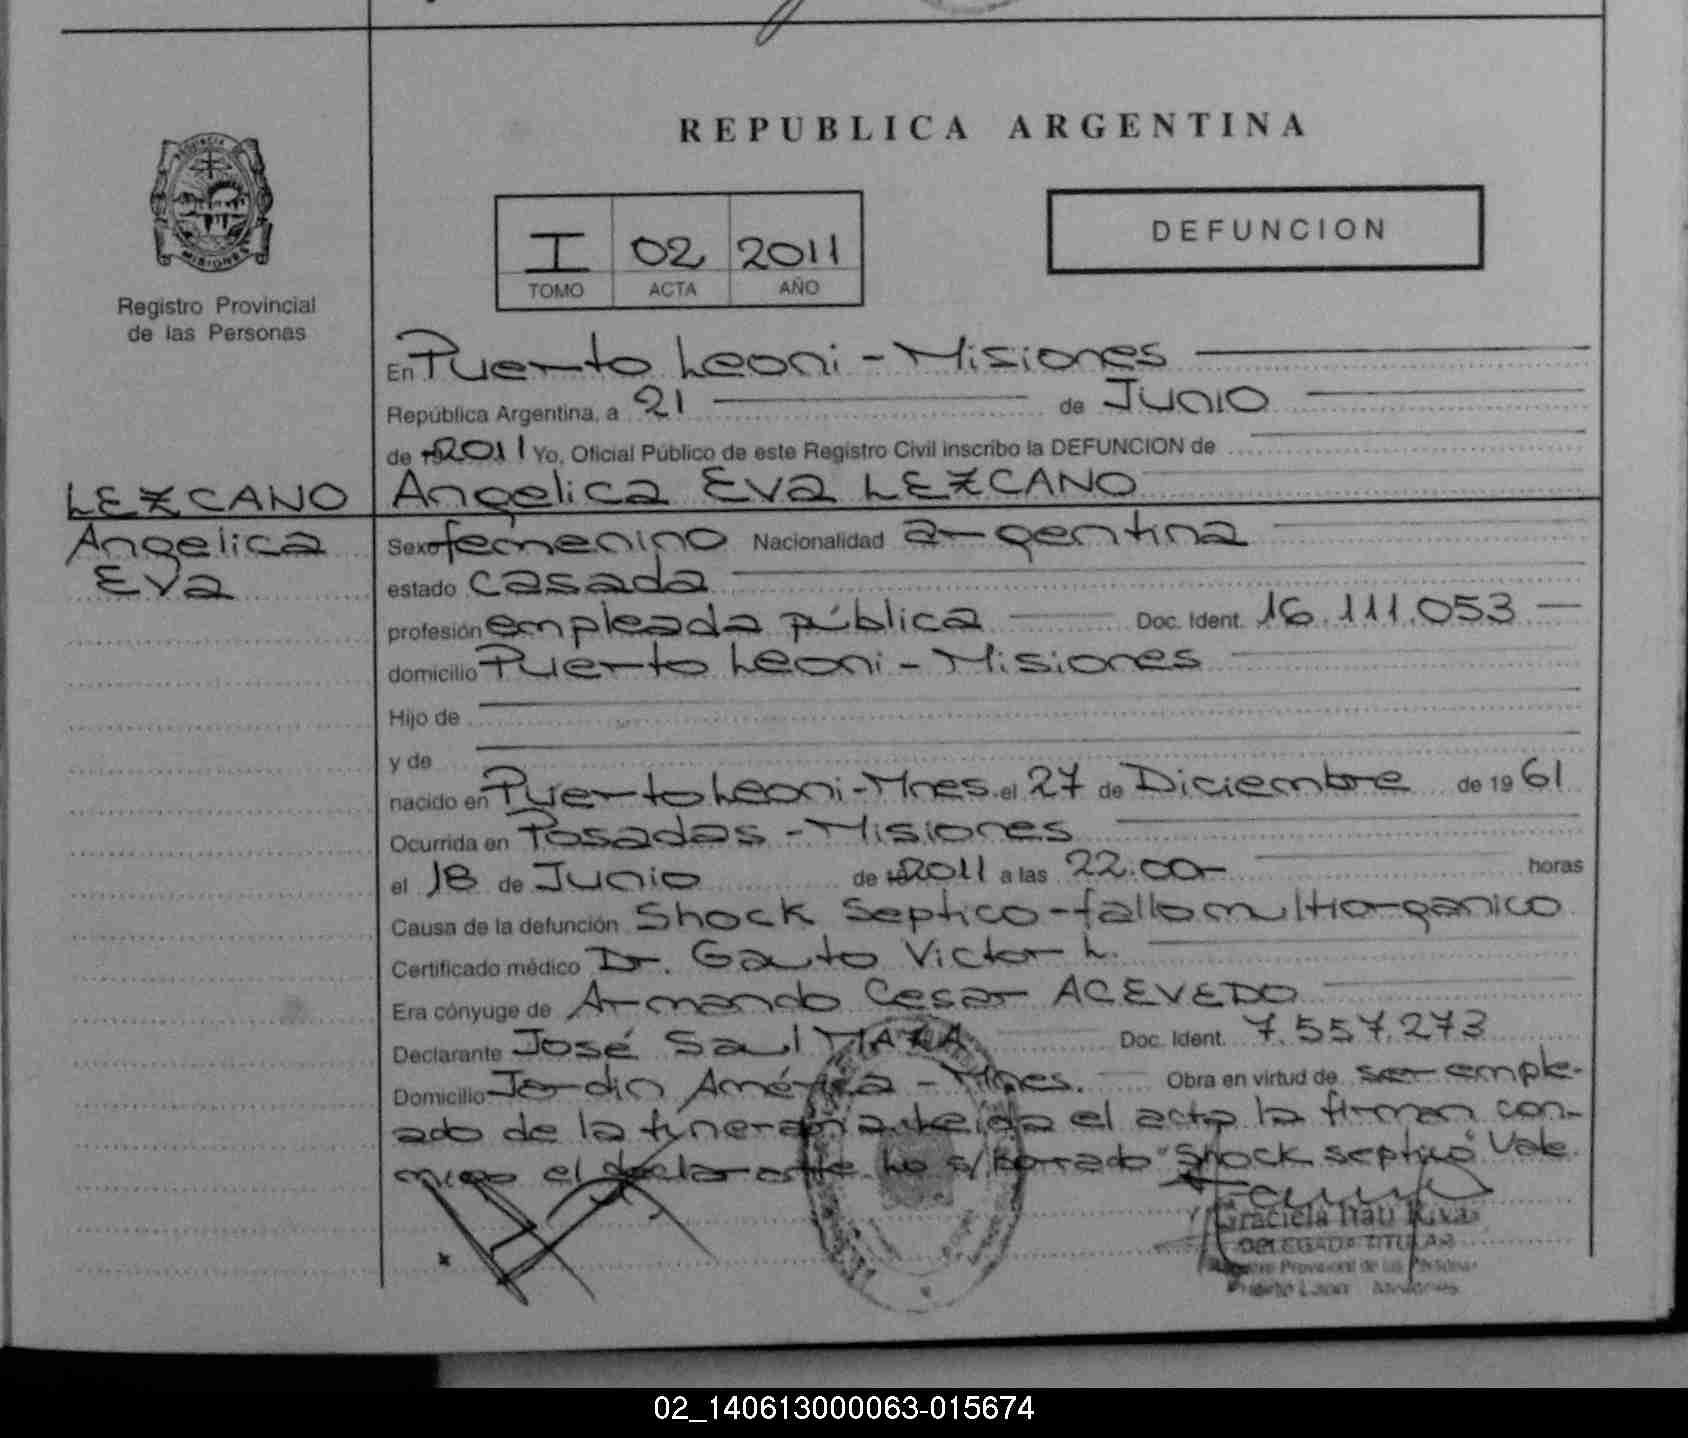 REPUBLICA ARGENTINA
PROVINCIA DE
MISIONES
Registro Provincial
de las Personas
I 02 2011
TOMO ACTA AÑO
DEFUNCION
En Puerto Leoni - Misiones
República Argentina, a 21 de Junio
de 2011 Yo, Oficial Público de este Registro Civil inscribo la DEFUNCION de
LEZCANO
Angelica
Eva
Angelica Eva LEZCANO
Sexo femenino Nacionalidad argentina
estado casada
profesión empleada pública Doc. Ident. 16.111.053
domicilio Puerto Leoni - Misiones
Hijo de
y de
nacido en Puerto Leoni - Mnes. el 27 de Diciembre de 1961
Ocurrida en Posadas - Misiones
el 18 de Junio de 2011 a las 22.00 horas
Causa de la defunción Shock Septico - fallo multiorganico
Certificado médico Dr. Gauto Victor L.
Era cónyuge de Armando Cesar ACEVEDO
Declarante José Saul MAZA Doc. Ident. 7.557.273
Domicilio Jardin América - Mnes. Obra en virtud de ser emple-
ado de la funeraria leida el acta la firman con-
migo el declarante. Lo s/borrado "Shock septico" Vale.
Graciela Itati
DELEGADA TITULAR
Registro Provincial de las Personas
Puerto Leoni Misiones
02_140613000063-015674